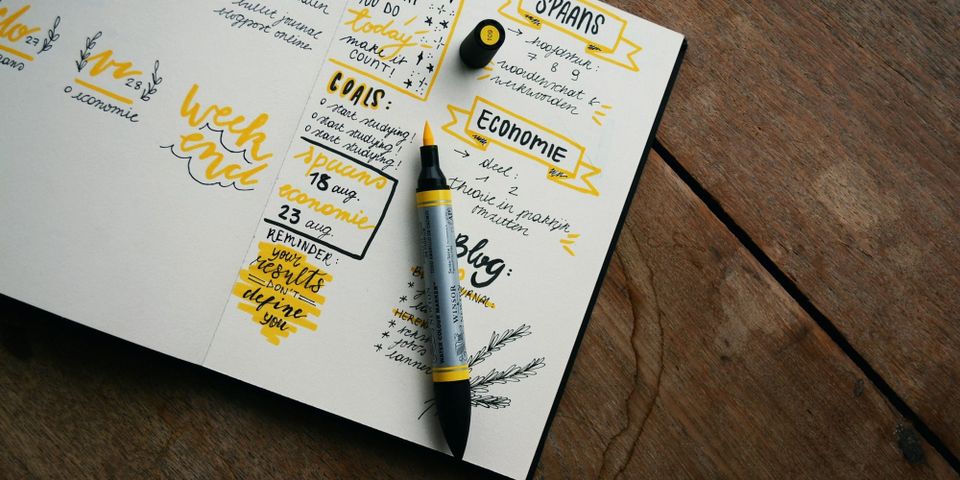 27
bullet journal
blogpost online
28
o economie
week
end
YOU DO
today
make it
COUNT!
GOALS:
o start studying!
o start studying!
o start studying!
spaans
18 aug.
economie
23 aug.
REMINDER:
your
results
DON'T
define
you
SPAANS
→ hoofdstuk:
7 8 9
woordenschat &
werkwoorden
ECONOMIE
→ deel:
1 2
theorie in praktijk
omzetten
Blog:
WINSOR
WATER COLOUR MARKER